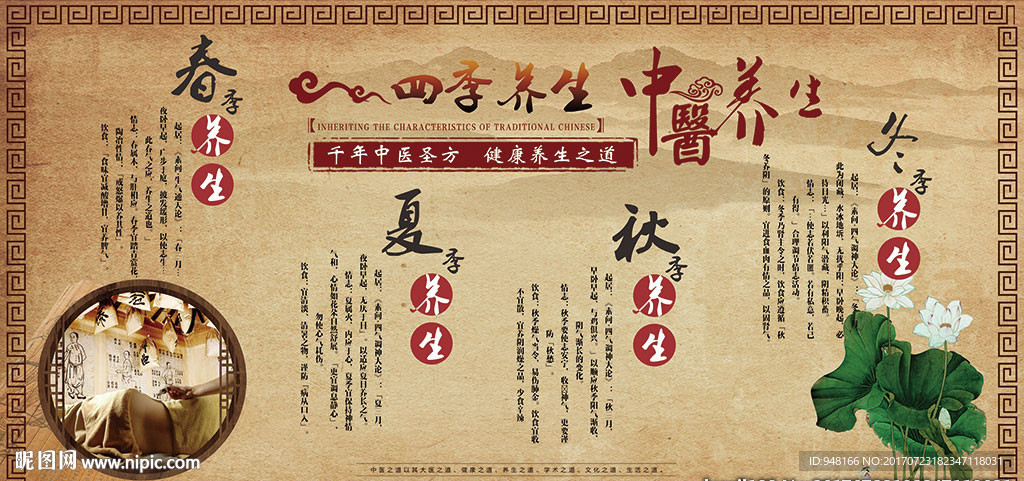 四季养生 中醫养生
INHERITING THE CHARACTERISTICS OF TRADITIONAL CHINESE
千年中医圣方 健康养生之道
春季
养生
起居：《素问·四气调神大论》：“春三月，
夜卧早起，广步于庭，被发缓形，以使志生…
此春气之应，养生之道也。”
情志：春属木，与肝相应。春季宜踏青赏花，
陶冶性情；“戒怒爆以养其性”
饮食：“食味宜减酸增甘，宜养脾气”。
夏季
养生
起居：《素问·四气调神大论》：“夏三月，
夜卧早起，无厌于日”，以适应夏日养长之气。
情志：夏属火，内应于心。夏季宜保持神情
气和，心情如花含苞欲舒展。“更宜调息静心”，
勿使心气耗伤。
饮食：宜清淡、清暑之物，谨防“病从口入”
秋季
养生
起居：《素问·四气调神大论》：“秋三月，
早卧早起，与鸡俱兴。”以顺应秋季阳气渐收、
阴气渐长的变化。
情志：秋季要使志安宁，收敛神气，更要谨
防“秋愁”
饮食：秋季燥气当令，易伤肺金。饮食宜收
不宜散，宜养阴润燥之品，少食辛辣
冬季
养生
起居：《素问·四气调神大论》：“冬三月，
此为闭藏，水冰地坼，无扰乎阳，早卧晚起，必
待日光…”以利阳气潜藏，阴精积蓄。
情志：“…使志若伏若匿，若有私意，若已
有得。”合理调节情志活动。
饮食：冬季乃肾主令之时，饮食应遵循“秋
冬养阴”的原则，宜进食血肉有情之品，以固肾气
中医之道以其大医之道、健康之道、养生之道、学术之道、文化之道、生活之道。
昵图网 www.nipic.com
ID:948166 NO:20170723182347118031